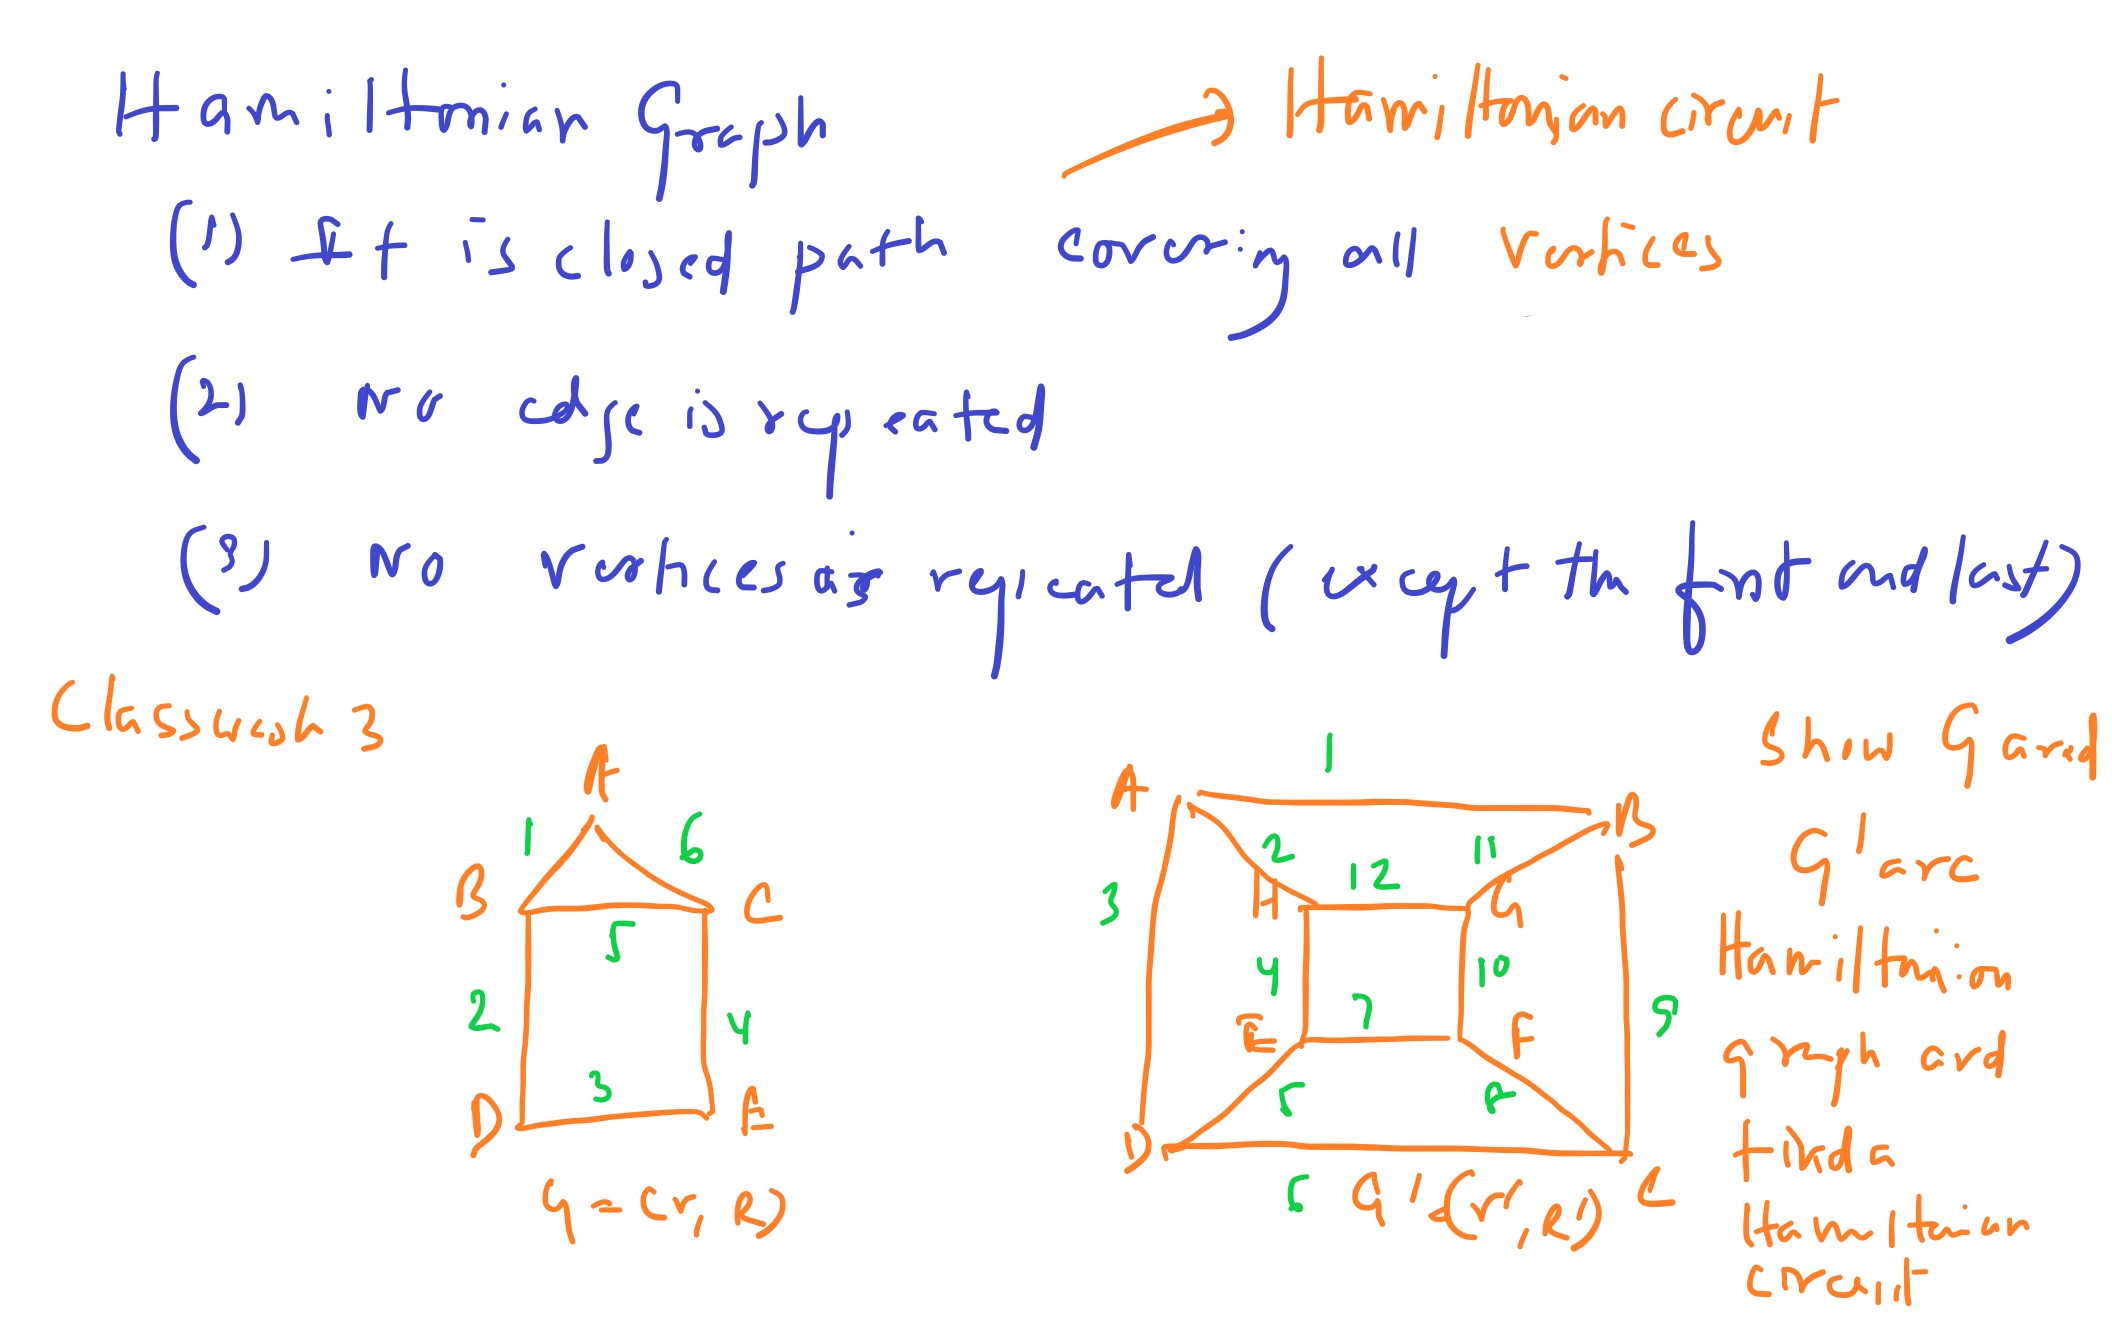 Hamiltonian Graph → Hamiltonian circuit
(1) It is closed path covering all vertices
(2) No edge is repeated
(3) No vertices is repeated (except the first and last)
Classwork 3
A
1 6
B C
5
2 4
3
D E
G = (V, R)
1
A B
2 12 11
3 H G
4 7 10 9
E F
5 8
D C
6 G' = (V', R')
Show G and
G' are
Hamiltonion
graph and
find a
Hamiltonian
circuit